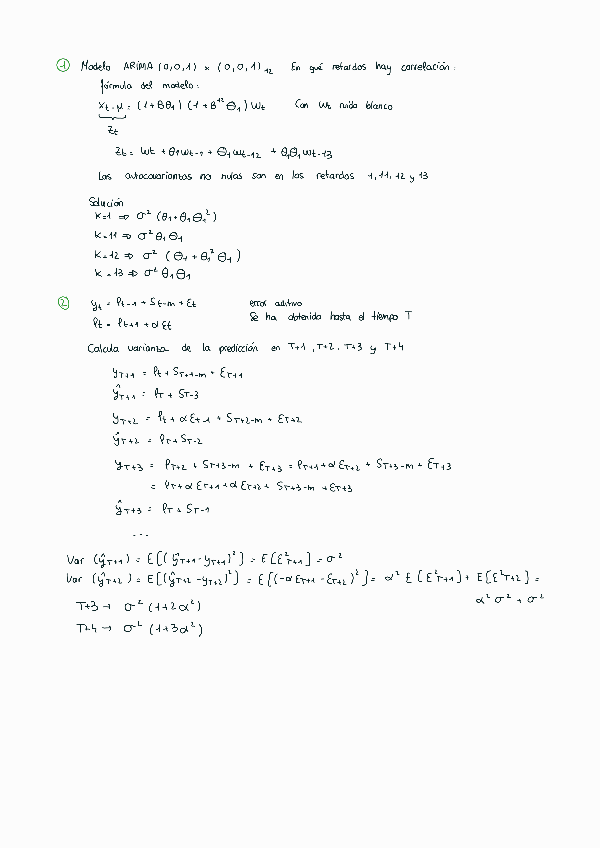 ① Modelo ARIMA (0,0,1) × (0,0,1)₁₂ En qué retardos hay correlación:
fórmula del modelo:
Xt - μ = (1+Bθ₁) (1+B¹²Θ₁) Wt Con Wt ruido blanco
Zt
Zt = Wt + θ₁Wt-1 + Θ₁Wt-12 + θ₁Θ₁Wt-13
Las autocovarianzas no nulas son en los retardos 1, 11, 12 y 13
Solución
K=1 ⇒ σ² (θ₁+θ₁Θ₁²)
K=11 ⇒ σ²θ₁Θ₁
K=12 ⇒ σ² (Θ₁ + θ₁²Θ₁)
K=13 ⇒ σ²θ₁Θ₁
② yt = lt-1 + St-m + Et error aditivo
lt = lt+1 + αEt Se ha obtenido hasta el tiempo T
Calcula varianza de la predicción en T+1, T+2, T+3 y T+4
yT+1 = lt + ST+1-m + ET+1
ŷT+1 = lT + ST-3
yT+2 = lt + αEt+1 + ST+2-m + ET+2
ŷT+2 = lT + ST-2
yT+3 = lT+2 + ST+3-m + ET+3 = lT+1 + αET+2 + ST+3-m + ET+3
= lT + αET+1 + αET+2 + ST+3-m + ET+3
ŷT+3 = lT + ST-1
...
Var (ŷT+1) = E[(ŷT+1 - yT+1)²] = E[E²T+1] = σ²
Var (ŷT+2) = E[(ŷT+2 - yT+2)²] = E[(-αET+1 - ET+2)²] = α² E[E²T+1] + E[E²T+2] =
α²σ² + σ²
T+3 → σ² (1+2α²)
T+4 → σ² (1+3α²)